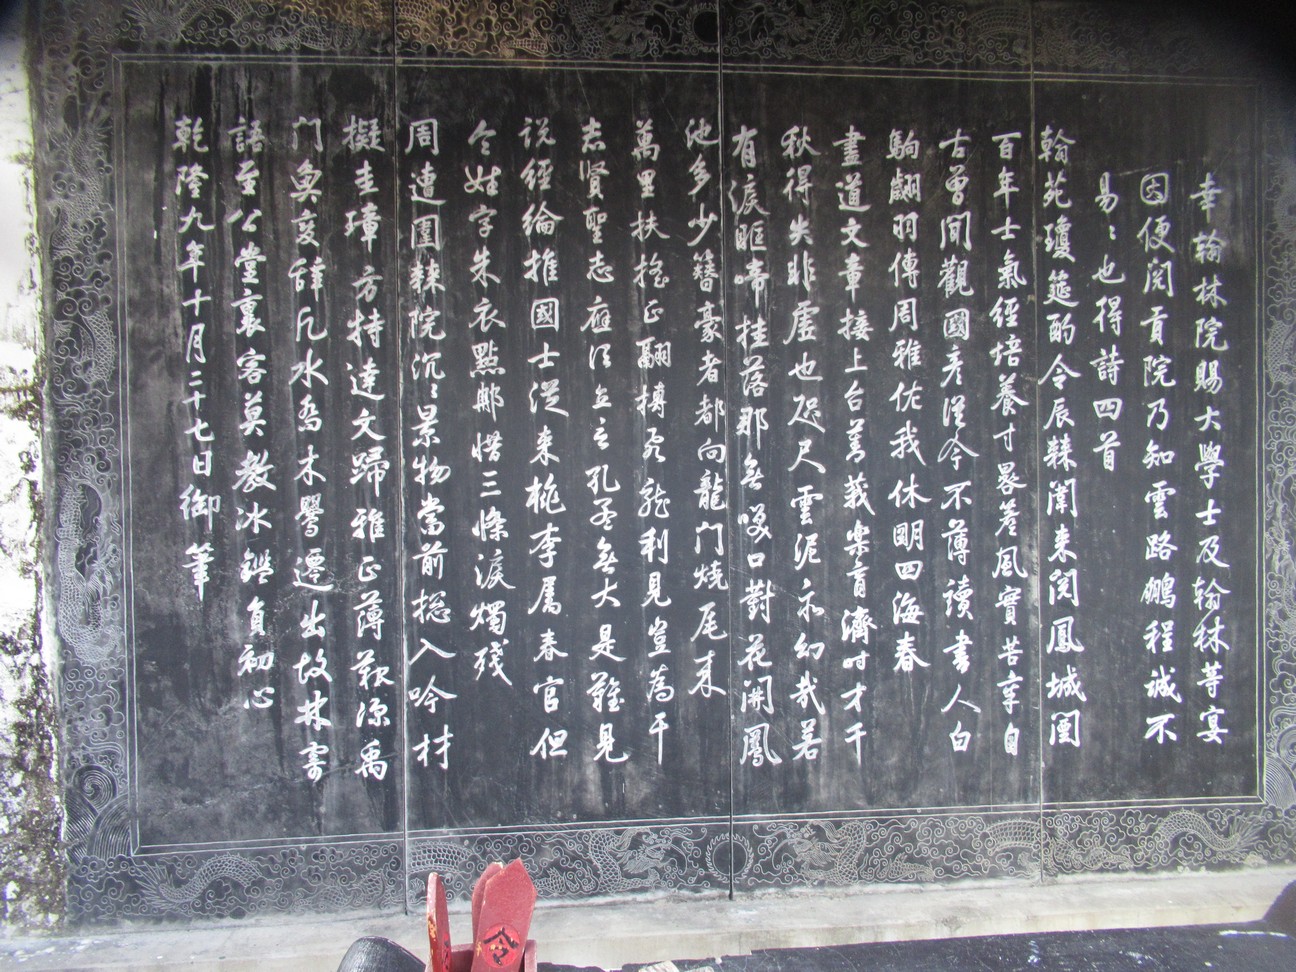 幸翰林院賜大學士及翰林等宴
因便閱貢院乃知雲路鵬程誠不
易〻也得詩四首
翰苑瓊筵酌令辰棘闈来閱鳳城闉
百年士氣經培養寸晷簷風實苦辛自
古曾聞觀國彥從今不薄讀書人白
駒翽羽傳周雅佐我休明四海春
盡道文章接上台菁莪樂育濟时才千
秋得失非虛也咫尺雲泥亦幻哉若
有淚眶啼桂落那無笑口對花開鳳
池多少簪豪者都向龍门燒尾来
萬里扶搖正翮摶飛龍利見豈為干
志賢聖志應須立言孔孟無大是難見
说經綸推國士從来桃李屬春官但
令姓字朱衣點那惜三條淚燭殘
周遭圍棘院沉〻景物當前總入吟材
擬圭璋方特達文歸雅正薄艱深禹
门魚變辭凡水喬木鶯遷出故林寄
語至公堂裏客莫教冰鑑負初心
乾隆九年十月二十七日御筆
令